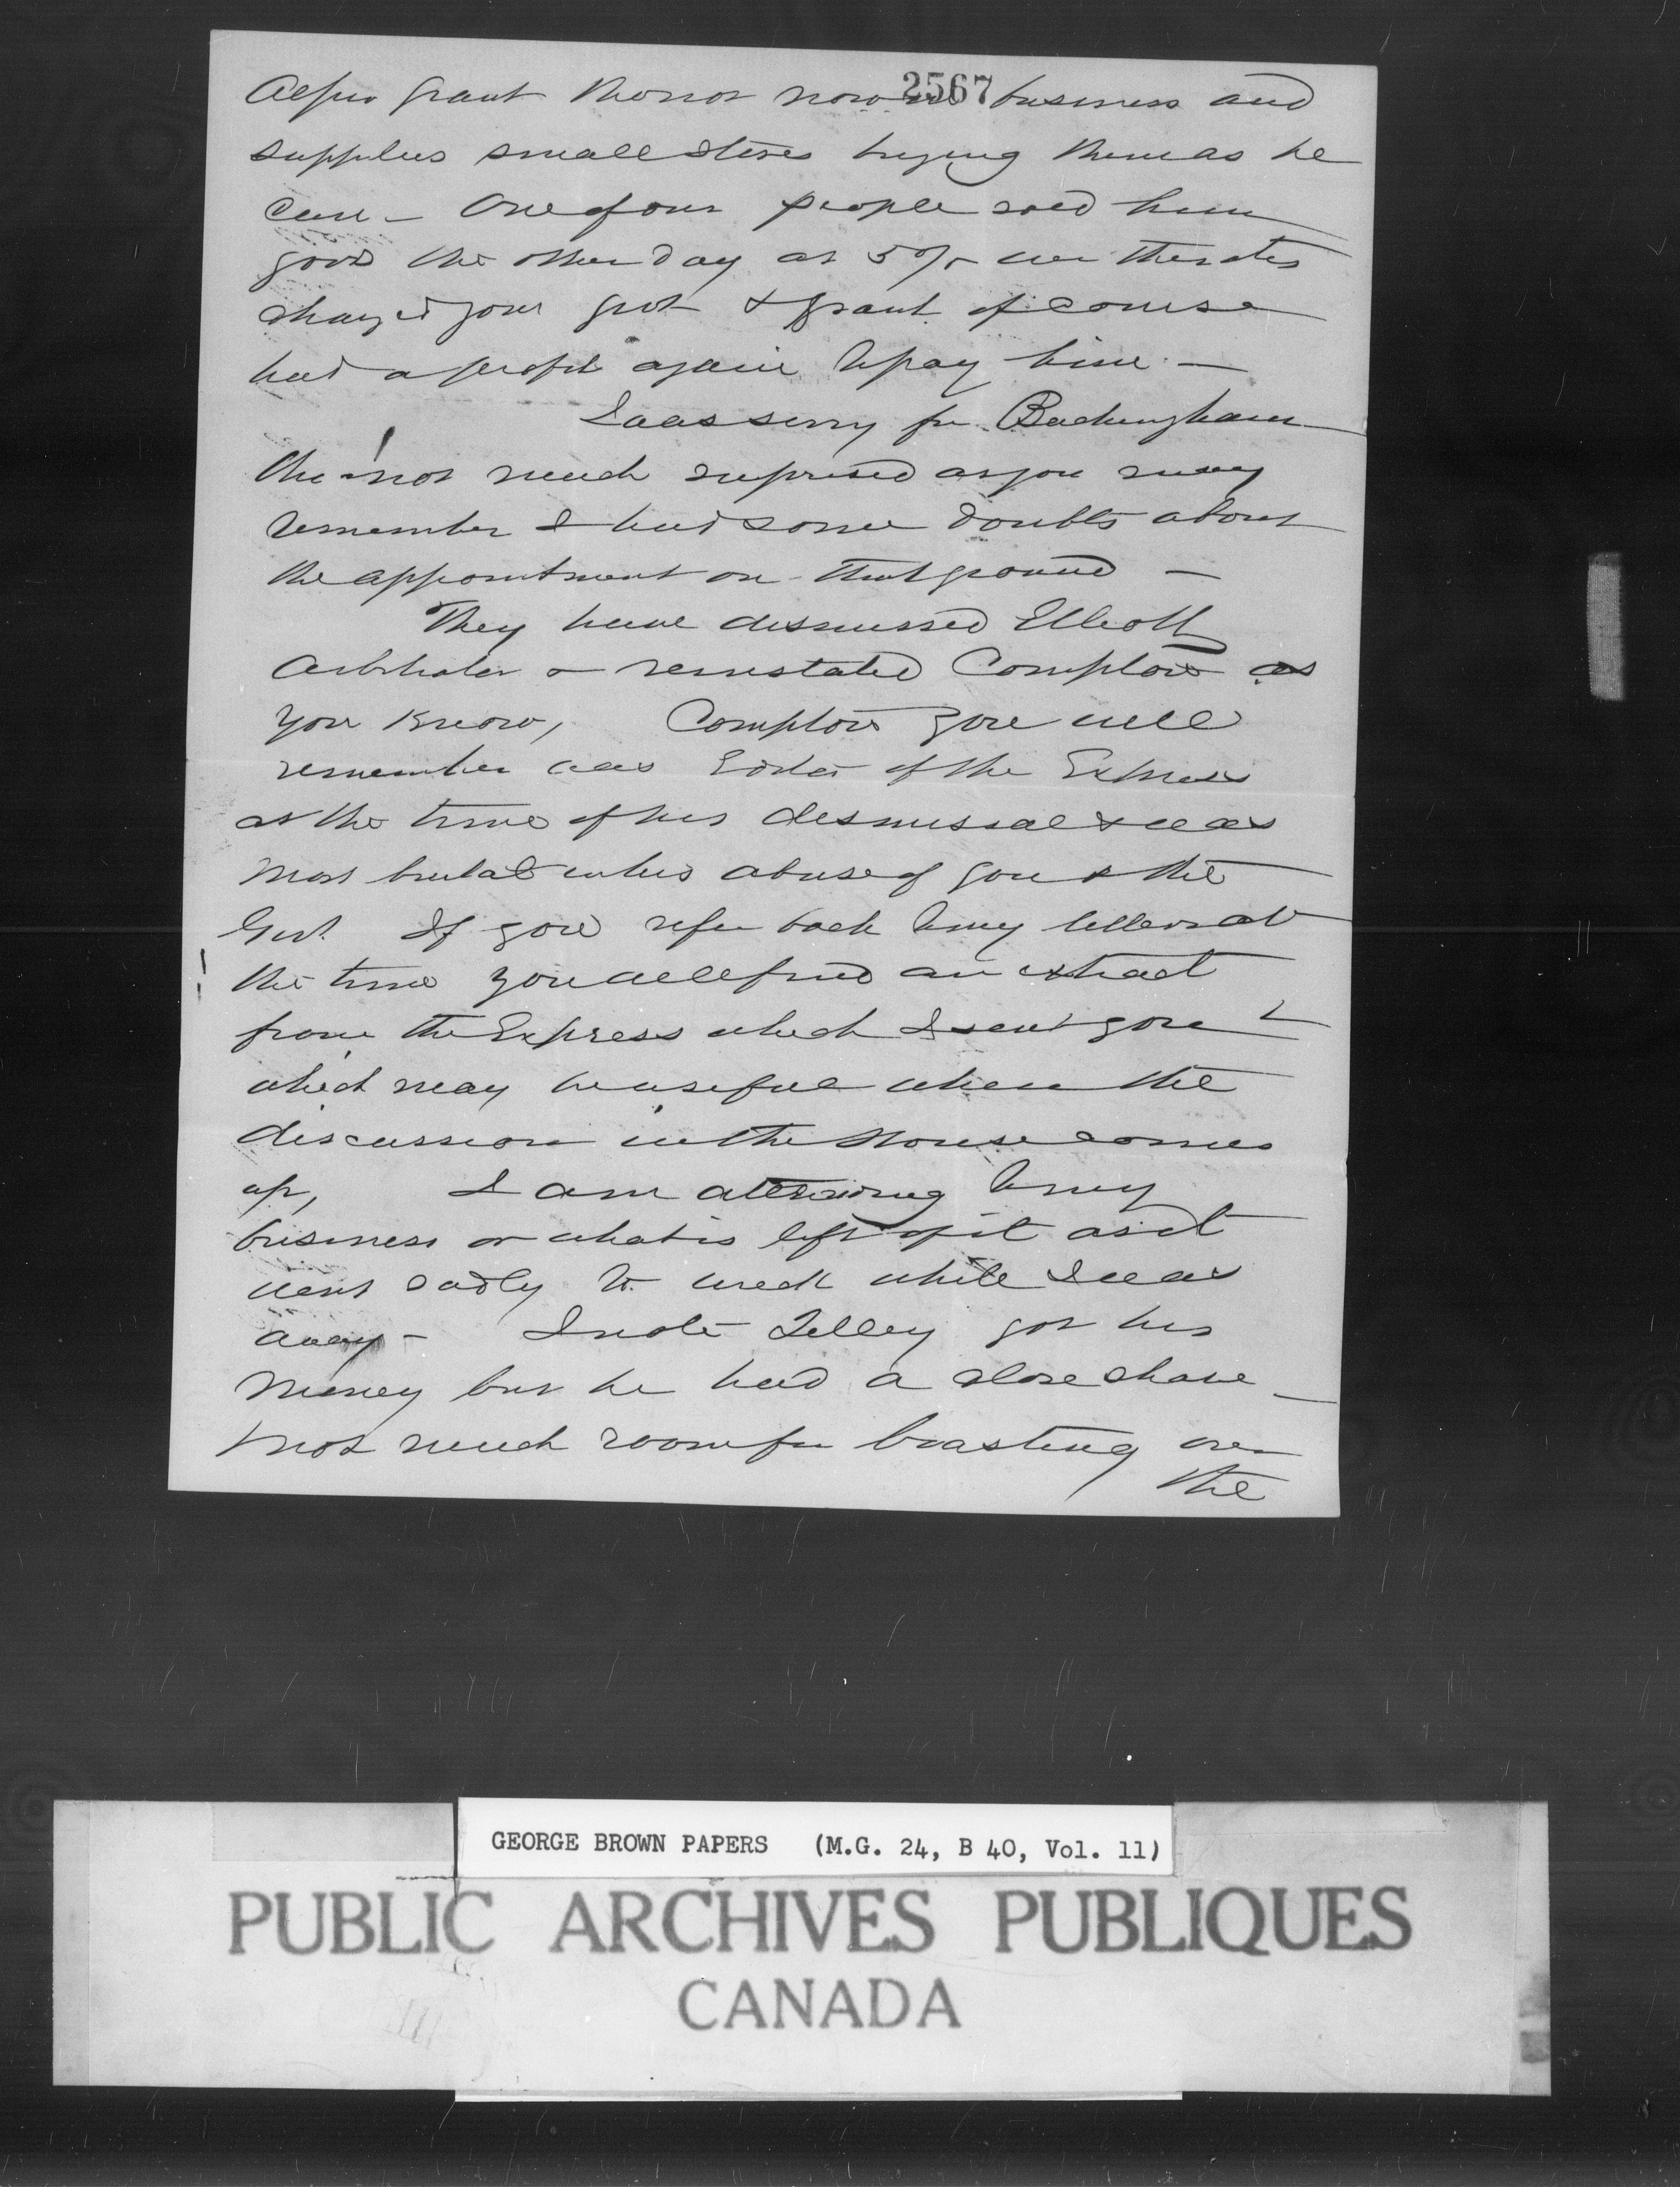 2567
Grant now business and
supplies small stores buying them as he
can - One of our people sold him
goods the other day at 5% the rates
charged your Govt & Grant of course
had a profit again to pay him -
I was sorry for Buckingham
tho' not much suprised as you may
remember I had some doubts about
the appointment on that ground -
They have dismissed Elliott
Arbitrator & reinstated Compton as
you know, Compton you will
remember was Editor of the Express
at the time of his dismissal & was
most brutal in his abuse of you & the
Govt. If you refer back to my letters at
the time you will find an extract
from the Express which I sent you &
which may be useful when the
discussion in the House comes
up, I am attending to my
business or what is left of it as it
went sadly to wreck while I was
away - I note Tilley got his
money but he had a close shave -
not much room for boasting over
the
GEORGE BROWN PAPERS (M.G. 24, B 40, Vol. 11)
PUBLIC ARCHIVES PUBLIQUES
CANADA